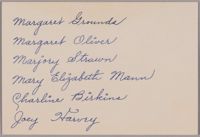 Margaret Grounds
Margaret Oliver
Marjory Strawn
Mary Elizabeth Mann
Charline Birkins
Joey Harvey